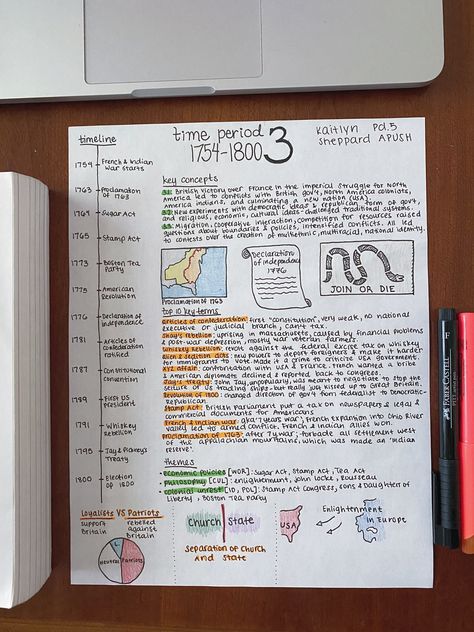 time period 3
1754-1800
Kaitlyn Pd.5
sheppard APUSH
timeline
1754 French & Indian War starts
1763 Proclamation of 1763
1764 Sugar Act
1765 Stamp Act
1773 Boston Tea Party
1775 American Revolution
1776 Declaration of Independence
1781 Articles of Confederation ratified
1787 Constitutional Convention
1789 First US President
1791 Whiskey Rebellion
1795 Jay & Pinckney's Treaty
1800 Election of 1800
key concepts
3.1: British victory over France in the imperial struggle for North
America led to conflicts with British gov't, North America colonists,
America indians, and culminating a new nation (USA).
3.2: New experiments with democratic ideas & republican form of gov't,
and religious, economic, cultural ideas - challenged traditional systems.
3.3: Migration, cooperative interaction, competition for resources raised
questions about boundaries & policies, intensified conflicts. All led
to contests over the creation of multiethnic, multiracial, national identity.
Proclamation of 1763
Declaration of independence 1776
JOIN OR DIE
top 10 key terms
articles of confederation: first "constitution", very weak, no national
executive or judicial branch, can't tax.
Shay's rebellion: uprising in massachusetts, caused by financial problems
& post-war depression, mostly war veteran farmers.
Whiskey Rebellion: revolt against the federal excise tax on whiskey
alien & sedition acts: new powers to deport foreigners & make it harder
for immigrants to vote. Made it a crime to criticize USA government.
XYZ affair: confrontation with USA & France. French wanted a bribe
& American diplomats declined & reported back to congress.
Jay's treaty: John Jay, unpopularly, was meant to negotiate to stop the
seizure of US trading ships - but really just kissed up to Great Britain.
Revolution of 1800: changed direction of gov't from federalist to Democratic-
Republican.
Stamp Act: British parliament put a tax on newspapers & legal &
commercial documents for Americans
French & Indian war: aka '7 years war', French expansion into Ohio River
valley led to armed conflict. French & indian allies won.
Proclamation of 1763: after '7 y war', forbade all settlement west
of the appalachian mountains, which was made an 'indian
reserve'.
themes
economic policies [WOR]: Sugar Act, Stamp Act, Tea Act
philosophy [CUL]: enlightenment, john locke, rousseau
colonial unrest [ID, POL]: Stamp Act Congress, sons & daughter of
Liberty, Boston Tea Party
Loyalists VS Patriots
support Britain
rebelled against Britain
Neutral
Patriots
Church State
separation of church
and state
USA
Enlightenment
in Europe
FABER-CASTELL